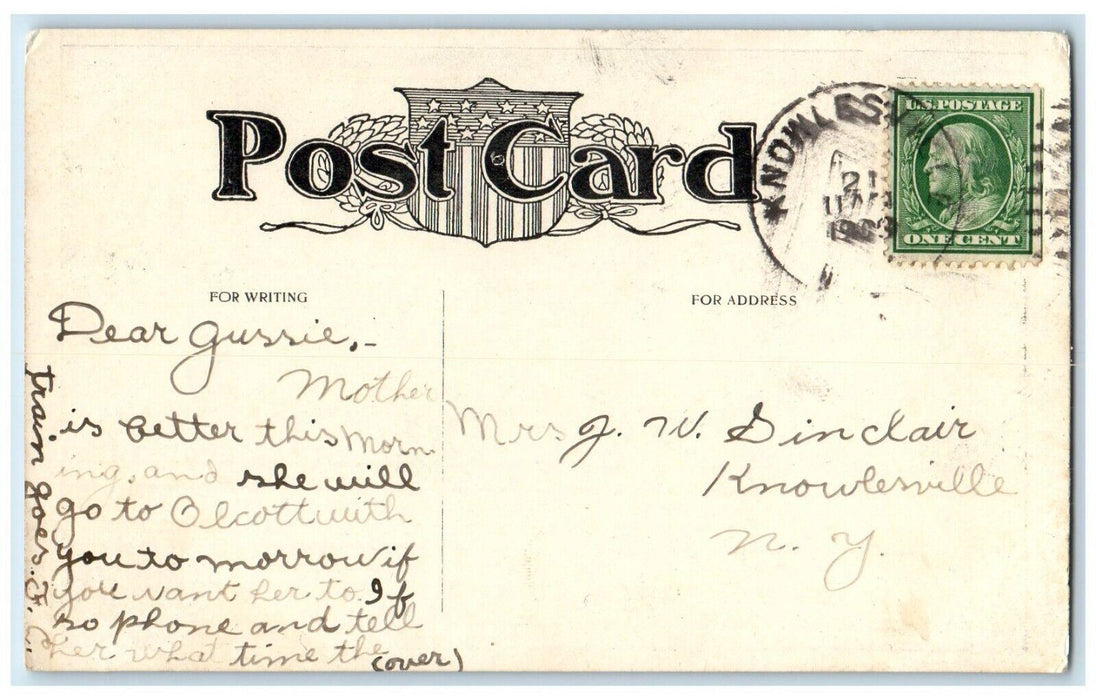 Post Card
KNOWLESV
21
1909
U.S. POSTAGE
ONE CENT
FOR WRITING
FOR ADDRESS
Dear Gussie,-
Mother
is better this morn
ing, and she will
go to Olcott with
you to morrow if
you want her to. If
so phone and tell
her what time the
(over)
train goes.
Mrs J. W. Sinclair
Knowlesville
N. Y.